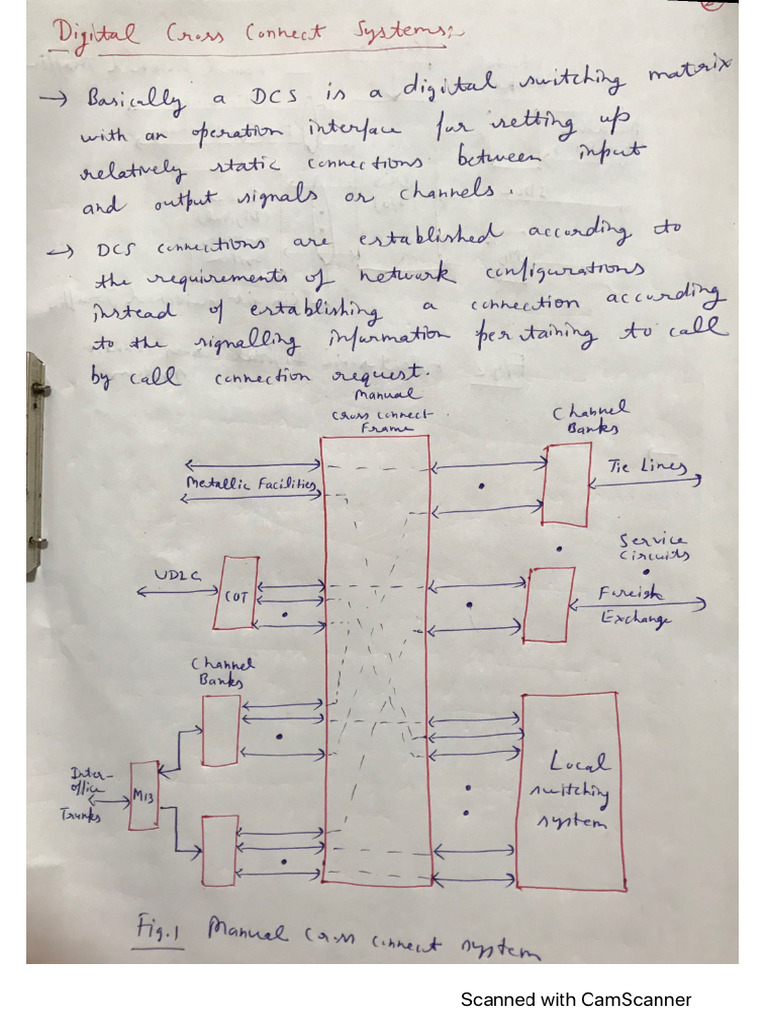 Digital Cross Connect Systems:-
→ Basically a DCS is a digital switching matrix
with an operation interface for setting up
relatively static connections between input
and output signals or channels.
→ DCS connections are established according to
the requirements of network configurations
instead of establishing a connection according
to the signalling information pertaining to call
by call connection request.
Manual
Cross connect
Frame
Channel
Banks
Metallic Facilities
Tie Lines
Service
Circuits
UDLC
COT
Foreign
Exchange
Channel
Banks
Inter-
office
Trunks
M13
Local
switching
system
Fig.1 Manual cross connect system
Scanned with CamScanner